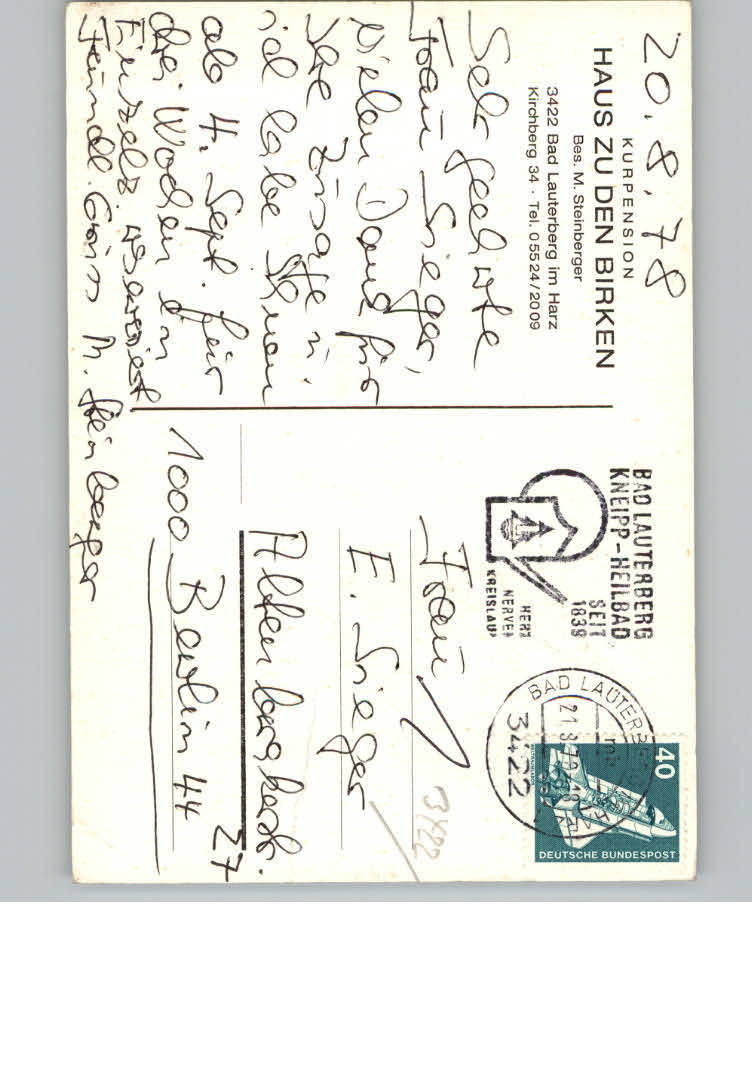 20.8.78
KURPENSION
HAUS ZU DEN BIRKEN
Bes. M. Steinberger
3422 Bad Lauterberg im Harz
Kirchberg 34 · Tel. 05524/2009
Sehr geehrte
Frau Sieger,
vielen Dank für
Ihre Zusage u.
ich habe Ihnen
ab 4. Sept. für
drei Wochen ein
Einzelz. reserviert
Freundl. Grüß M. Steinberger
BAD LAUTERBERG
KNEIPP-HEILBAD
SEIT
1839
HERZ
NERVEN
KREISLAUF
BAD LAUTERBERG
3422
40
DEUTSCHE BUNDESPOST
Frau
E. Sieger
27
1000 Berlin 44
3422